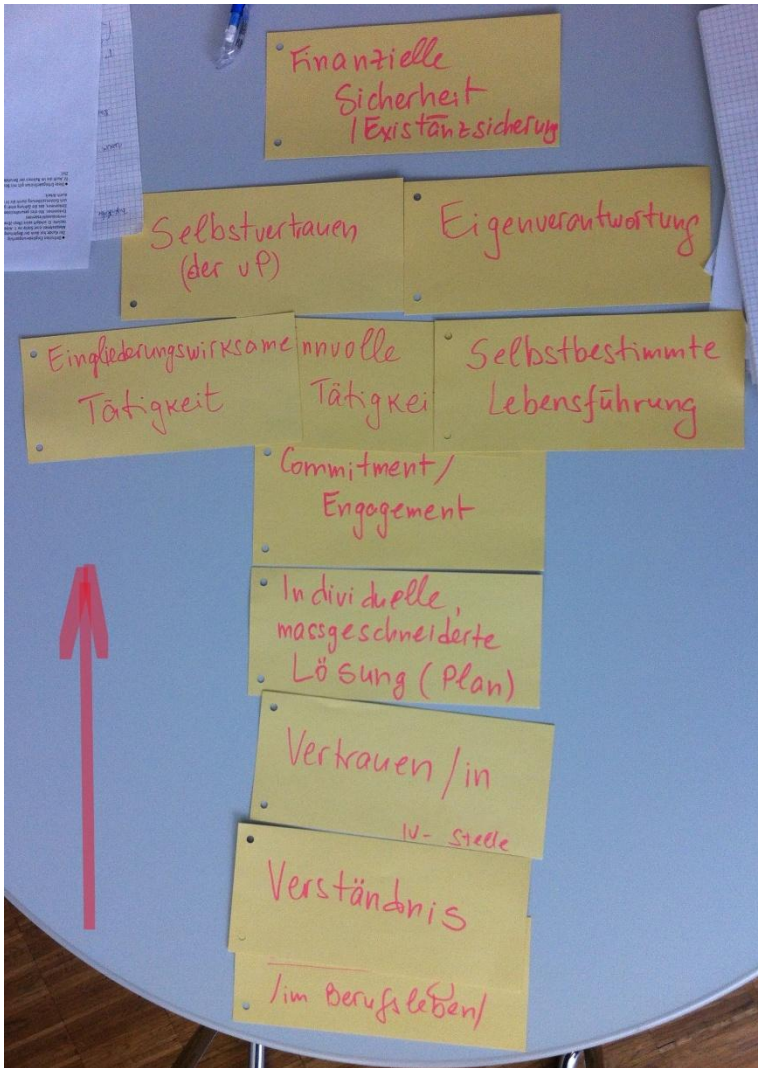 Finanzielle
Sicherheit
/Existänzsicherung
Selbstvertrauen
(der vP)
Eigenverantwortung
Eingliederungswirksame
Tätigkeit
nnvolle
Tätigkei
Selbstbestimmte
Lebensführung
Commitment/
Engagement
Individuelle,
massgeschneiderte
Lösung (Plan)
Vertrauen/in
IV-Stelle
Verständnis
/im Berufsleben/